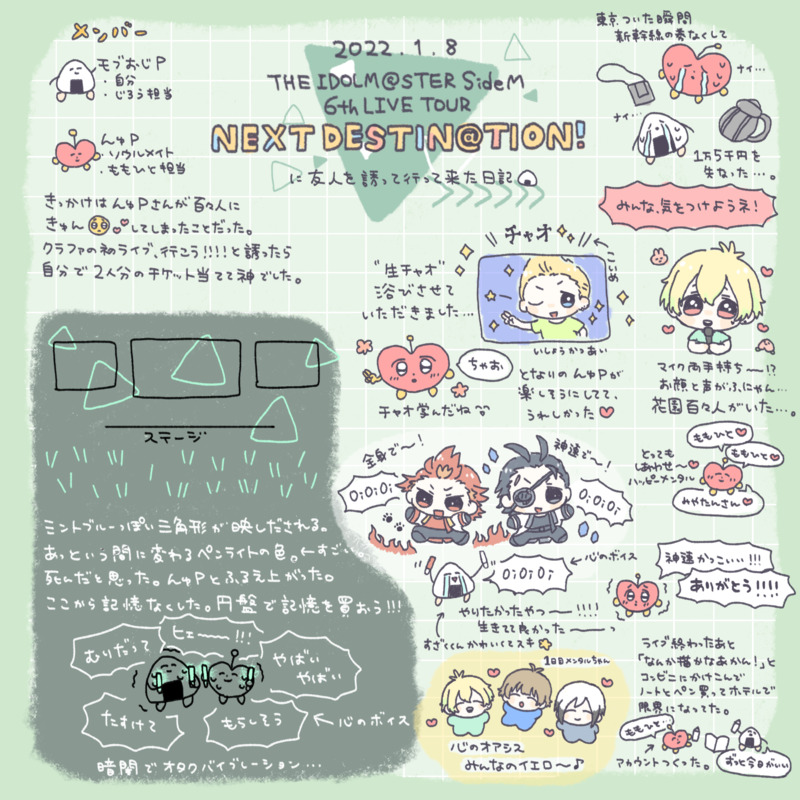 メンバー
モブおじP
・自分
・じろう担当
んゅP
・ソウルメイト
・ももひと担当
2022.1.8
THE IDOLM@STER SideM
6th LIVE TOUR
NEXT DESTIN@TION!
に友人を誘って行って来た日記
東京ついた瞬間
新幹線の券なくして
ナイ…
ナイ…
1万5千円を
失なった…。
みんな、気をつけようネ!
きっかけはんゅPさんが百々人に
きゅんしてしまったことだった。
クラファの初ライブ、行こう!!!!と誘ったら
自分で2人分のチケット当てて神でした。
チャオ
こいめ
"生チャオ"
浴びさせて
いただきました…
いしょうかっこいい
ちゃお
チャオ学んだね
となりのんゅPが
楽しそうにしてて、
うれしかった
マイク両手持ちー!?
お顔と声がふにゃん…
花園百々人がいた…。
とっても
しあわせ〜
ハッピーメンタル
ももひと
ももひと
みやたんさん
ステージ
ミントブルーっぽい三角形が映しだされる。
あっという間に変わるペンライトの色。←すごい。
死んだと思った。んゅPとふるえ上がった。
ここから記憶なくした。円盤で記憶を買おう!!!
むりだって
ヒェーー!!!
やばい
やばい
たすけて
もらしそう
←心のボイス
暗闇でオタクバイブレーション…
全身で〜!
神速で〜!
Oi Oi Oi
Oi Oi Oi
Oi Oi Oi
←心のボイス
やりたかったやつー!!!!
生きてて良かったーーっ
すざくくんかわいくてスキ
神速かっこいい!!!
ありがとう!!!!
1日目メンタルちゃん
心のオアシス
みんなのイエロ〜♪
ライブ終わったあと
「なんか描かなあかん!」と
コンビニにかけこんで
ノートとペン買ってホテルで
限界になってた。
ももひと…
アカウントつくった。
ずっと今日がいい